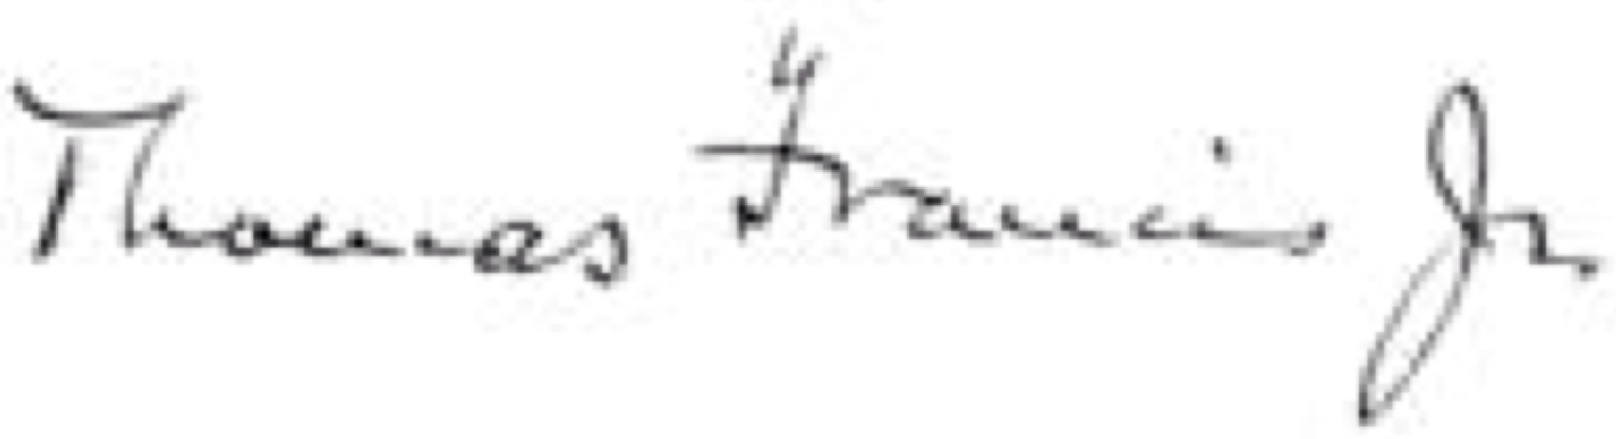 Thomas Francis Jr.